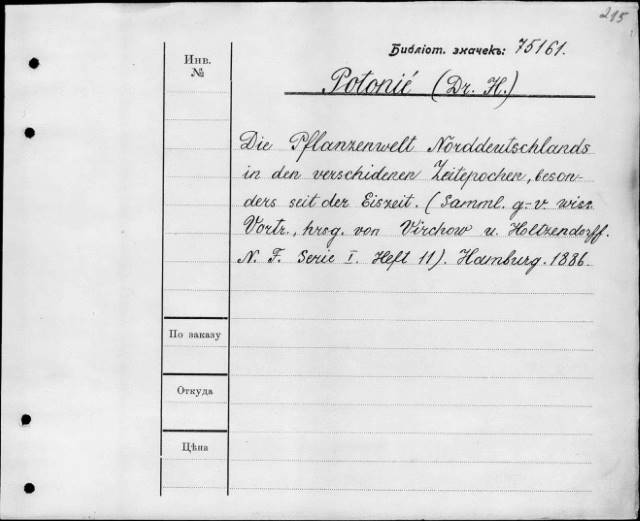 215
Библіот. значекъ: 75161.
Инв.
№
Potonié (Dr. H.)
Die Pflanzenwelt Norddeutschlands
in den verschidenen Zeitepochen, beson-
ders seit der Eiszeit. (Samml. g-v wiss
Vortr., hrsg. von Virchow u. Holtzendorff.
N. F. Serie I. Heft 11). Hamburg. 1886.
По заказу
Откуда
Цѣна